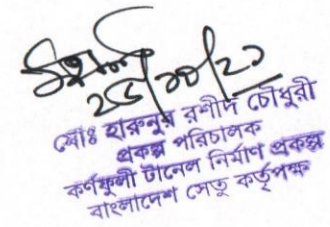 ২৫/০৮/২১
মোঃ হারুনুর রশীদ চৌধুরী
প্রকল্প পরিচালক
কর্ণফুলী টানেল নির্মাণ প্রকল্প
বাংলাদেশ সেতু কর্তৃপক্ষ